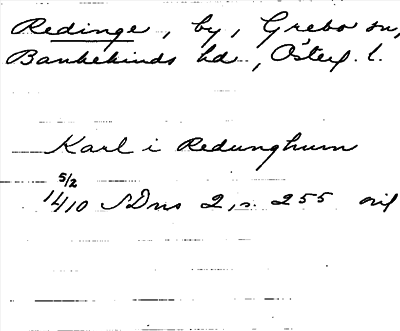 Redinge, by, Grebo sn,
Bankekinds hd., Österg. l.
Karl i Redunghum
5/2
1410 SDns 2, s. 255 orig